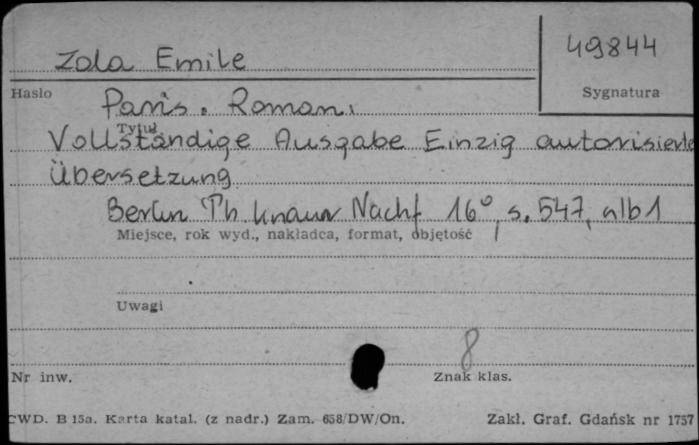 49844
Zola Emile
Hasło
Sygnatura
Paris. Roman.
Tytuł
Vollständige Ausgabe Einzig autorisierte
Übersetzung
Berlin Th. Knaur Nachf 16°, s. 547, nlb1
Miejsce, rok wyd., nakładca, format, objętość
Uwagi
8
Nr inw.
Znak klas.
CWD. B 15a. Karta katal. (z nadr.) Zam. 658/DW/On.
Zakł. Graf. Gdańsk nr 1757